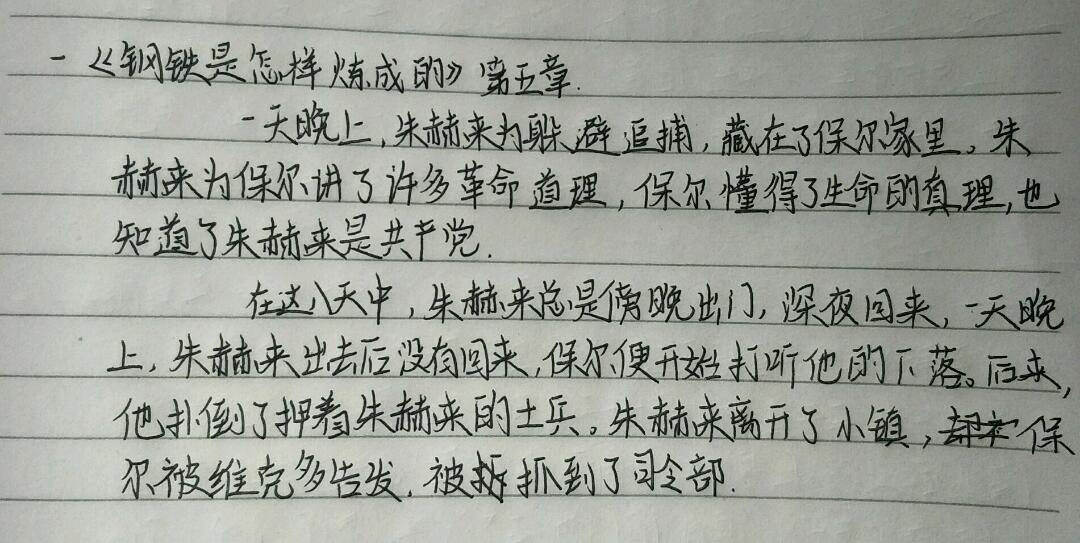 一《钢铁是怎样炼成的》第五章.
一天晚上,朱赫来为躲避追捕,藏在了保尔家里。朱
赫来为保尔讲了许多革命道理,保尔懂得了生命的真理,也
知道了朱赫来是共产党.
在这八天中,朱赫来总是傍晚出门,深夜回来,一天晚
上,朱赫来出去后没有回来,保尔便开始打听他的下落。后来,
他扑倒了押着朱赫来的士兵。朱赫来离开了小镇,保
尔被维克多告发,被抓到了司令部.